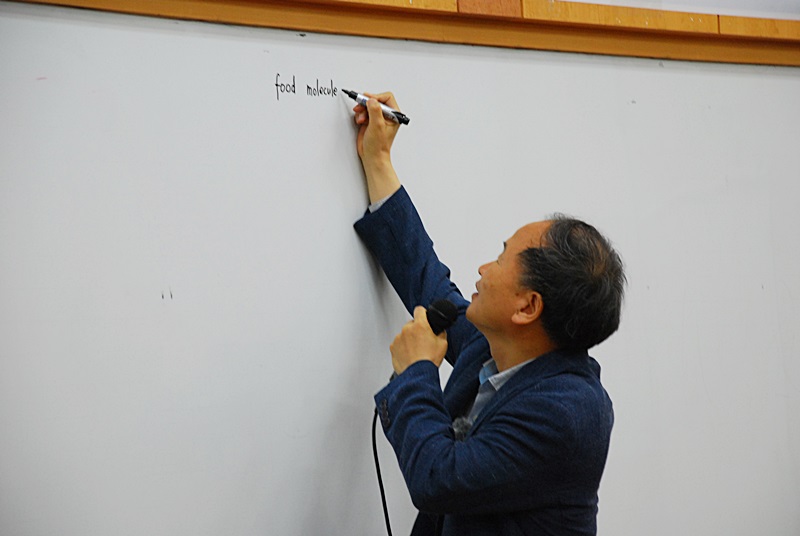 food molecule